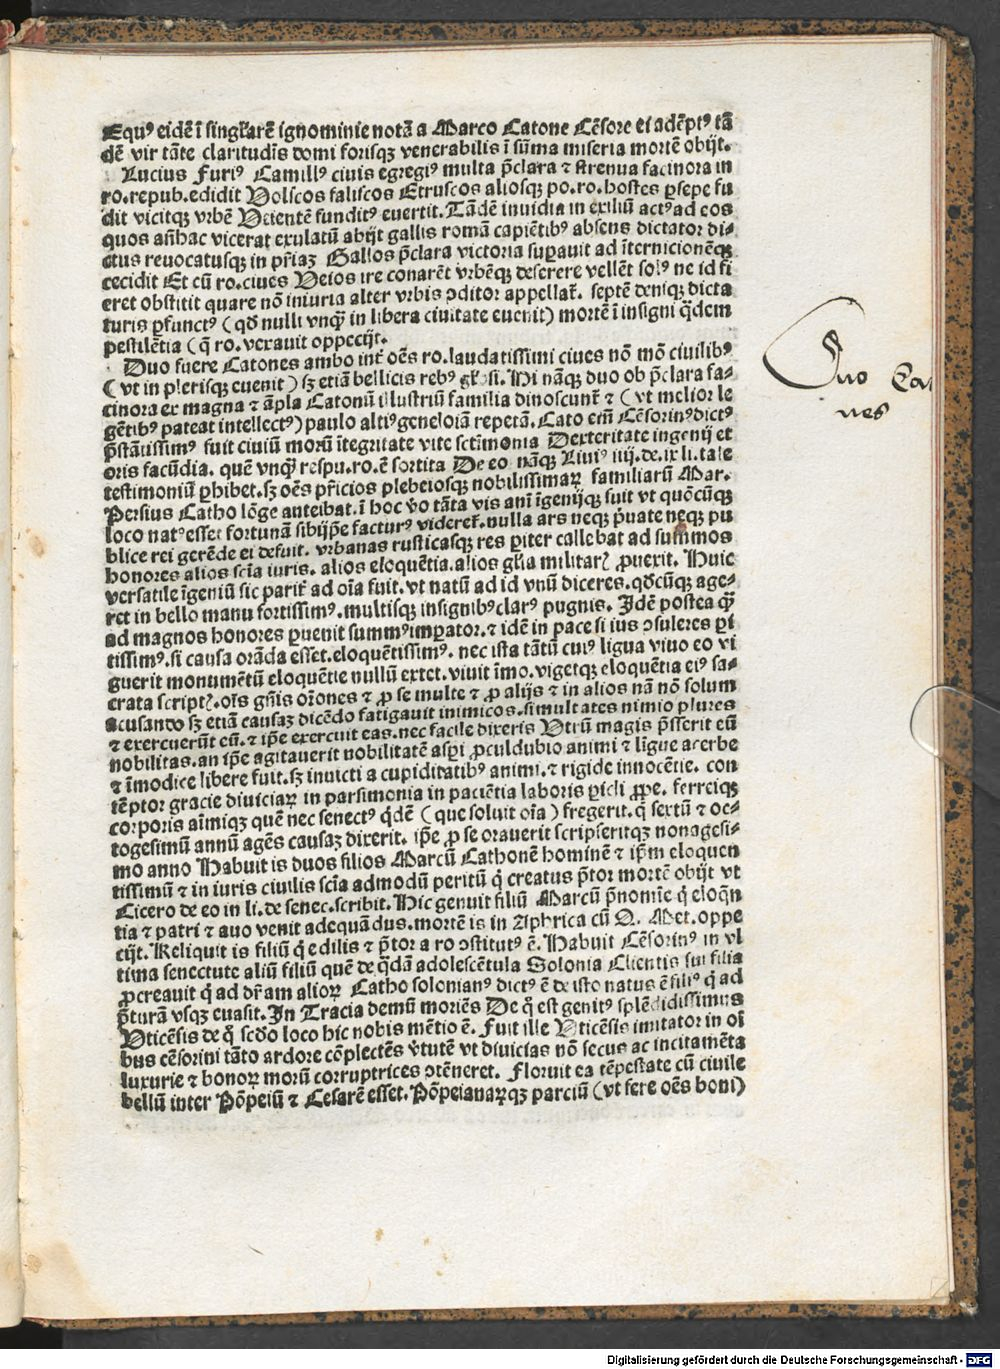 Equꝰ eidē ī singl̄arē ignominie notā a Marco Catone Cēsore ei adēptꝰ tā
dē vir tāte claritudīs domi forisqꝫ venerabilis ī sūma miseria mortē obijt.
Lucius Furiꝰ Camillꝰ ciuis egregiꝰ multa p̄clara ⁊ strenua facinora in
ro.repub.edidit Volscos faliscos Etruscos aliosqꝫ po.ro.hostes ꝑsepe fu
dit vicitqꝫ vrbē Veientē funditꝰ euertit.Tādē inuidia in exiliū actꝰ ad eos
quos an̄hac vicerat exulatū abijt gallis romā capiētibꝰ absens dictator di⸗
ctus reuocatusqꝫ in pr̄iaꝫ Gallos p̄clara victoria suꝑauit ad īternicionēqꝫ
cecidit Et cū ro.ciues Veios ire conarēt vrbēqꝫ deserere vellēt solꝰ ne id fi
eret obstitit quare nō iniuria alter vrbis ꝯditor appellat̄. septē deniqꝫ dicta
turis ꝑfunctꝰ (qd̄ nulli vnqꝫ̄ in libera ciuitate euenit) mortē ī insigni q̄dem
pestilētia (q̄ ro.vexauit oppecijt.
Duo fuere Catones ambo int̄ oēs ro.laudatissimi ciues nō mō ciuilibꝰ
(vt in plerisqꝫ euenit) sꝫ etiā bellicis rebꝰ gl̄osi.Hi nāqꝫ duo ob p̄clara fa⸗
cinora ex magna ⁊ āpla Catonū illustriū familia dinoscunt̄ ⁊ (vt melior le
gētibꝰ pateat intellectꝰ) paulo altiꝰ geneloiā repetā.Cato em̄ Cēsorinꝰ dictꝰ
p̄stātissimꝰ fuit ciuiū morū ītegritate vite sctīmonia Dexteritate ingenij et
oris facūdia. quē vnqꝫ̄ respu.ro.ē sortita De eo nāqꝫ Liuiꝰ iiij.de.ix li.tale
testimoniū ꝑhibet.sꝫ oēs pr̄icios plebeiosqꝫ nobilissimaꝝ familiarū Mar.
Persius Catho lōge anteibat.ī hoc v̄o tāta vis anī īgenijqꝫ fuit vt quōcūqꝫ
loco natꝰ esset fortunā sibijp̄e facturꝰ videret̄.nulla ars neqꝫ p̄uate neqꝫ pu
blice rei gerēde ei defuit. vrbanas rusticasqꝫ res ꝑiter callebat ad summos
honores alios scīa iuris. alios eloquētia.alios gl̄ia militarꝭ ꝓuexit. Huic
versatile īgeniū sic parit̄ ad oīa fuit.vt natū ad id vnū diceres.qd̄cūqꝫ age⸗
ret in bello manu fortissimꝰ.multisqꝫ insignibꝰ clarꝰ pugnis. Idē postea qꝫ̄
ad magnos honores ꝑuenit summꝰ imꝑator.⁊ idē in pace si ius ꝯsuleres ꝑi
tissimꝰ.si causa orāda esset.eloquētissimꝰ. nec ista tātū cuiꝰ ligua viuo eo vi
guerit monumētū eloquētie nullū extet.viuit īmo.vigetqꝫ eloquētia eiꝰ sa⸗
crata scriptꝭ.oīs gn̄is or̄ones ⁊ ꝓ se multe ⁊ ꝓ alijs ⁊ in alios nā nō solum
acusando sꝫ etiā causaꝫ dicēdo fatigauit inimicos.simultates nimio plures
⁊ exercuerūt eū.⁊ ip̄e exercuit eas.nec facile dixeris Vtrū magis p̄sserit eū
nobilitas.an ip̄e agitauerit nobilitatē asꝑi ꝓculdubio animi ⁊ ligue acerbe
⁊ īmodice libere fuit.sꝫ inuicti a cupiditatibꝰ animi.⁊ rigide innocētie. con
tēptor gracie diuiciaꝝ in parsimonia in paciētia laboris ꝑicli ꝓpe. ferreiqꝫ
corporis aīmiqꝫ quē nec senectꝰ qdē (que soluit oīa) fregerit.q̄ sextū ⁊ oc⸗
togesimū annū agēs causaꝫ dixerit. ip̄e ꝓ se orauerit scripseritqꝫ nonagesi⸗
mo anno Habuit is duos filios Marcū Cathonē hominē ⁊ ip̄m eloquen
tissimū ⁊ in iuris ciuilis scīa admodū peritū q̇ creatus p̄tor mortē obijt vt
Cicero de eo in li.de senec.scribit.Hic genuit filiū Marcū p̄nomīe q̇ eloq̄n
tia ⁊ patri ⁊ auo venit adequādus.mortē is in Aphrica cū Q. Met.oppe
cijt.Reliquit is filiū q̇ edilis ⁊ p̄tor a ro ꝯstitutꝰ ē.Habuit Cēsorinꝰ in vl
tima senectute aliū filiū quē de q̄dā adolescētula Solonia Clientis sui filia
ꝓcreauit q̇ ad dr̄am alioꝝ Catho solonianꝰ dictꝰ ē de isto natus ē filiꝰ q̇ ad
p̄turā vsqꝫ euasit.In Tracia demū moriēs De q̇ est genitꝰ splēdidissimus
Vticēsis de q̇ scd̄o loco hic nobis mētio ē. Fuit ille Vticēsis imitator in oī
bus cēsorini tāto ardore cōplectēs v̄tutē vt diuicias nō secus ac incitamēta
luxurie ⁊ bonoꝝ morū corruptrices ꝯtēneret. Floruit ea tēpestate cū ciuile
bellū inter Pōpeiū ⁊ Cesarē esset.Pōpeianaꝝqꝫ parciū (vt fere oēs boni)
Duo Cato
nes
Digitalisierung gefördert durch die Deutsche Forschungsgemeinschaft - DFG